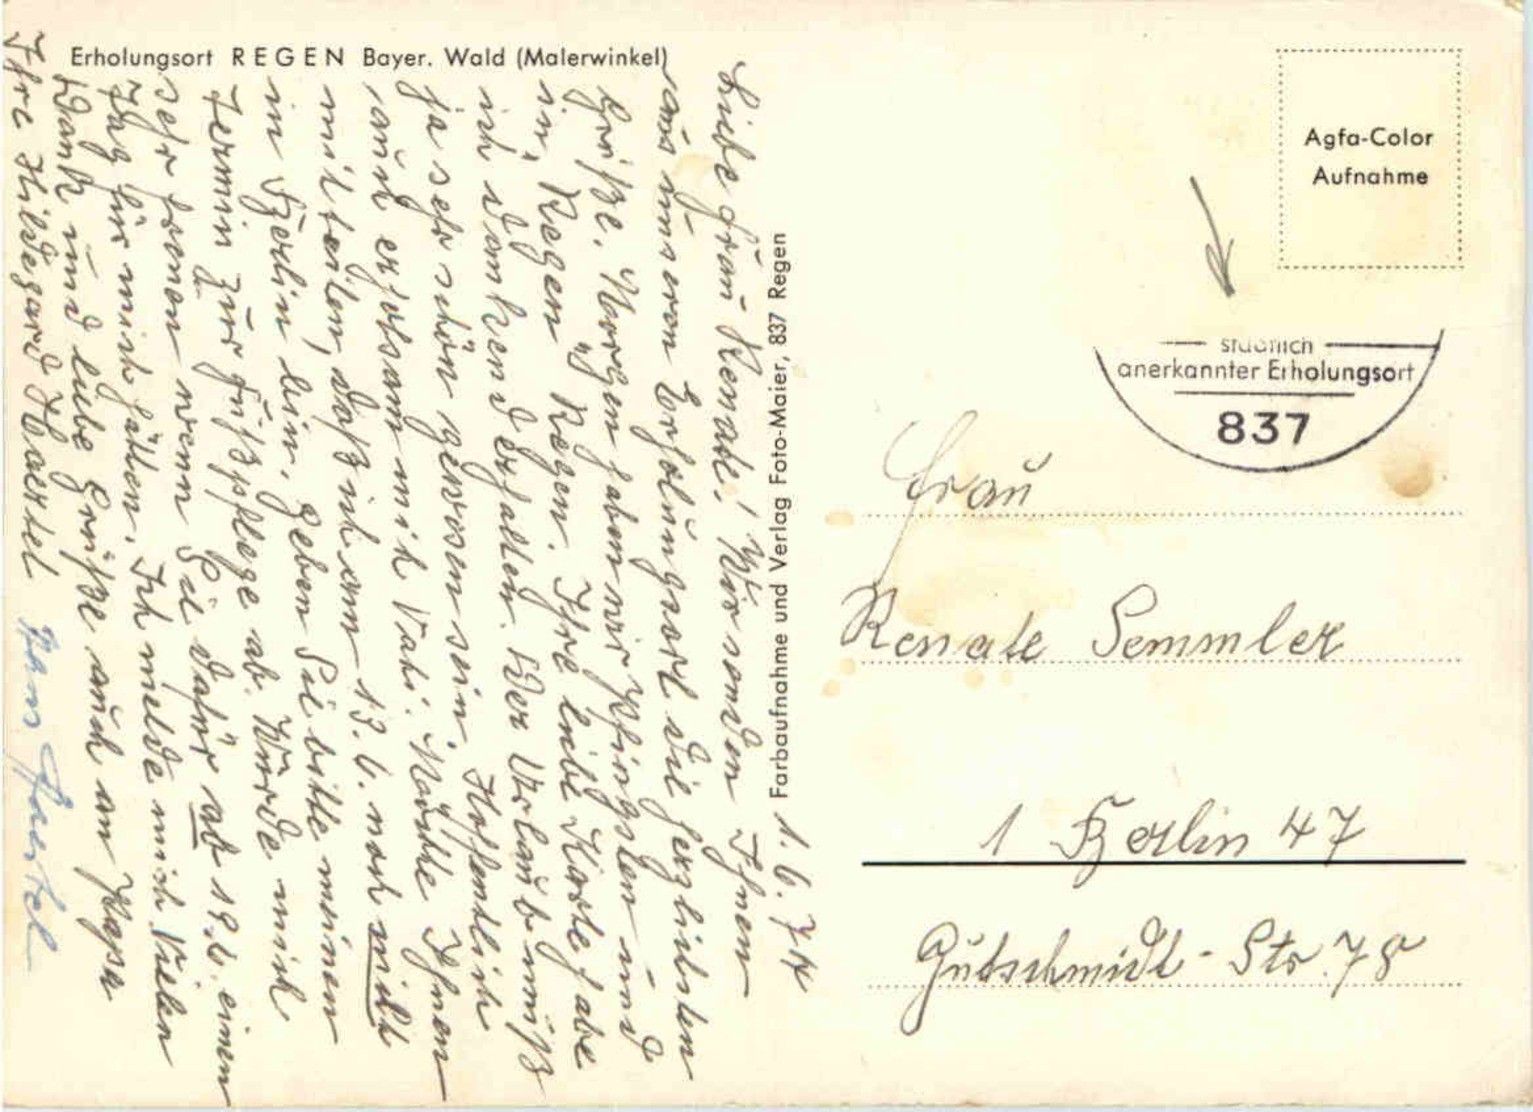 Erholungsort REGEN Bayer. Wald (Malerwinkel)
1.6.74
Liebe Frau Renate! Wir senden Ihnen
aus unseren Erholungsort die herzlichsten
Grüße. Morgen haben wir Pfingsten und
in "Regen" Regen. Ihre liebe Karte habe
ich dankend erhalten. Der Urlaub muß
ja sehr schön gewesen sein. Hoffentlich
auch erholsam mit Vati. Möchte Ihnen
mitteilen, daß ich am 13.6. noch nicht
in Berlin bin. Geben Sie bitte meinen
Termin zur Fußpflege ab. Würde mich
sehr freuen wenn Sie dafür ab 19.6. einen
Tag für mich hätten. Ich melde mich. Vielen
Dank und liebe Grüße auch an Papa
Ihre Hildegard Haertel
Haertel
Farbaufnahme und Verlag Foto-Maier, 837 Regen
Agfa-Color
Aufnahme
staatlich
anerkannter Erholungsort
837
Frau
Renate Semmler
1 Berlin 47
Gutschmidt-Str. 78